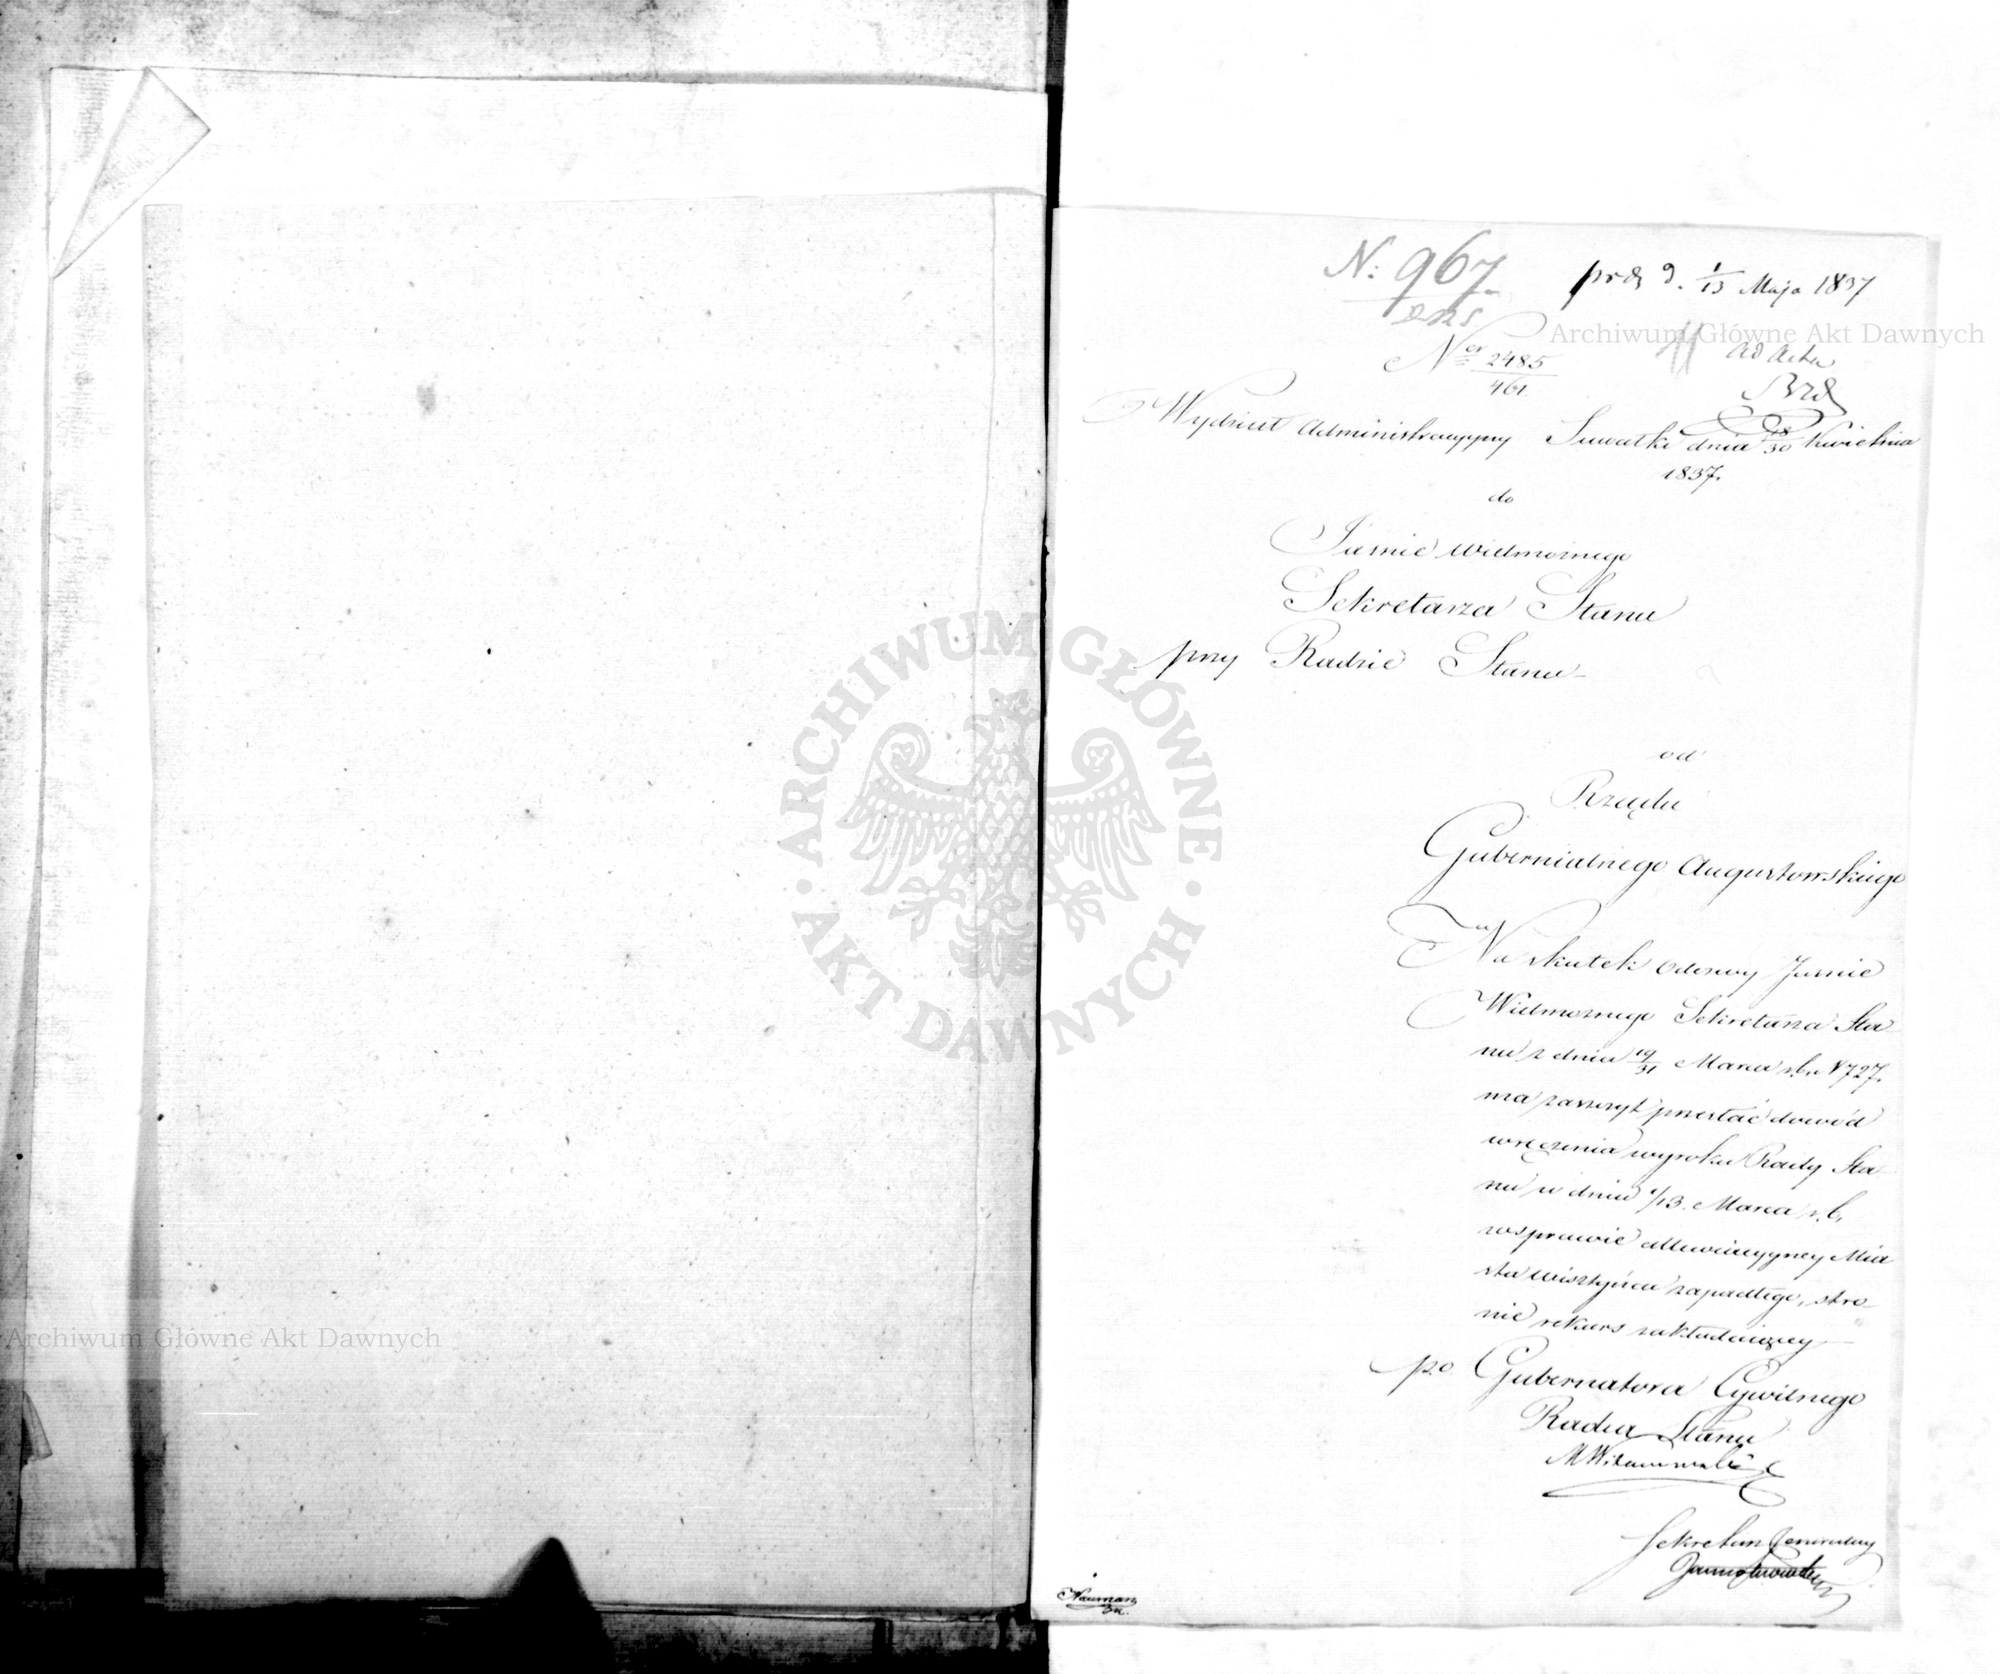 N: 967
prez d. 1/13 Maja 1837
Archiwum Główne Akt Dawnych
Ner 2485/461.
ad acta
Wydział Administracyjny Suwałki dnia 18/30 Kwietnia
1837.
do
Jaśnie Wielmożnego
Sekretarza Stanu
przy Radzie Stanu
od
Rządu
Gubernialnego Augustowskiego
Na skutek Odezwy Jaśnie
Wielmożnego Sekretarza Sta
nu z dnia 19/31 Marca r.b. N 727.
ma zaszczyt przesłać dowód
wręczenia wyroku Rady Sta
nu w dniu 1/13. Marca r.b.
w sprawie alluwiacyyney Mia
sta Wisztyńca zapadłego, stro-
nie rekurs zakładaiącey
p.o. Gubernatora Cywilnego
Radca Stanu
Sekretarz Jeneralny
Nauman
ARCHIWUM GŁÓWNE · AKT DAWNYCH ·
Archiwum Główne Akt Dawnych